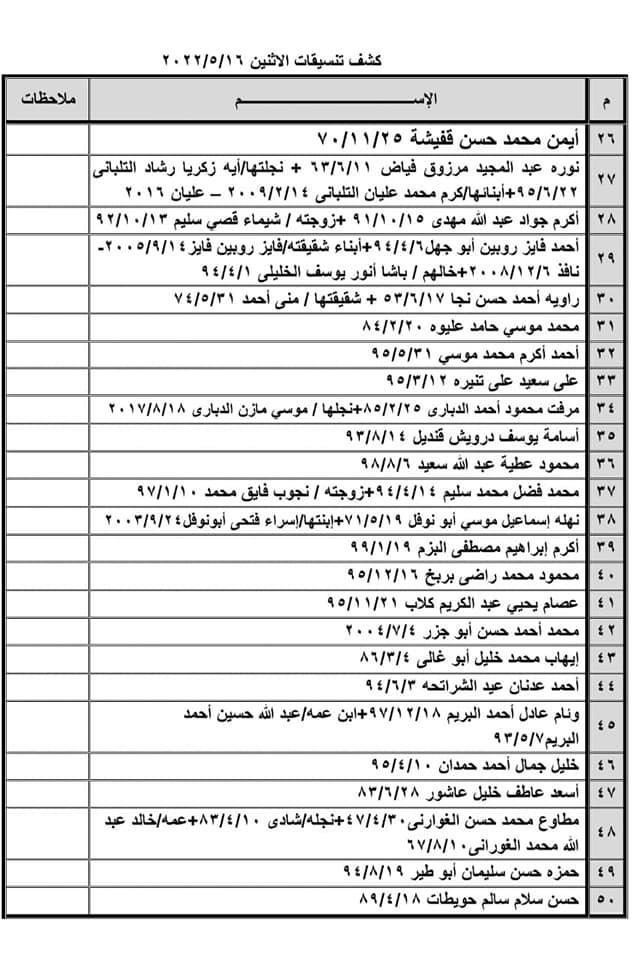 كشف تنسيقات الاثنين ٢٠٢٢/٥/١٦
م الإســـــــــــم ملاحظات
٢٦ أيمن محمد حسن قفيشة ٧٠/١١/٢٥
٢٧ نوره عبد المجيد مرزوق فياض ٦٣/٦/١١ + نجلتها/أيه زكريا رشاد التلبانى
٩٥/٦/٢٢+أبنائها/كرم محمد عليان التلبانى ٢٠٠٩/٢/١٤ – عليان ٢٠١٦
٢٨ أكرم جواد عبد الله مهدى ٩١/١٠/١٥ +زوجته / شيماء قصي سليم ٩٢/١٠/١٣
٢٩ أحمد فايز روبين أبو جهل٩٤/٤/٦+أبناء شقيقته/فايز روبين فايز٢٠٠٥/٩/١٤-
نافذ ٢٠٠٨/١٢/٦+خالهم / باشا أنور يوسف الخليلى ٩٤/٤/١
٣٠ راويه أحمد حسن نجا ٥٣/٦/١٧ + شقيقتها / منى أحمد ٧٤/٥/٣١
٣١ محمد موسي حامد عليوه ٨٤/٢/٢٠
٣٢ أحمد أكرم محمد موسي ٩٥/٥/٣١
٣٣ على سعيد على تنيره ٩٥/٣/١٢
٣٤ مرفت محمود أحمد الدبارى ٨٥/٢/٢٥+نجلها / موسي مازن الدبارى ٢٠١٧/٨/١٨
٣٥ أسامة يوسف درويش قنديل ٩٣/٨/١٤
٣٦ محمود عطية عبد الله سعيد ٩٨/٨/٦
٣٧ محمد فضل محمد سليم ٩٤/٤/١٤+زوجته / نجوب فايق محمد ٩٧/١/١٠
٣٨ نهله إسماعيل موسي أبو نوفل ٧١/٥/١٩+إبنتها/إسراء فتحى أبونوفل٢٠٠٣/٩/٢٤
٣٩ أكرم إبراهيم مصطفى البزم ٩٩/١/١٩
٤٠ محمود محمد راضى بربخ ٩٥/١٢/١٦
٤١ عصام يحيي عبد الكريم كلاب ٩٥/١١/٢١
٤٢ محمد أحمد حسن أبو جزر ٢٠٠٤/٧/٤
٤٣ إيهاب محمد خليل أبو غالى ٨٦/٣/٤
٤٤ أحمد عدنان عيد الشراتحه ٩٤/٦/٣
٤٥ ونام عادل أحمد البريم ٩٧/١٢/١٨+ابن عمه/عبد الله حسين أحمد
البريم٩٣/٥/٧
٤٦ خليل جمال أحمد حمدان ٩٥/٤/١٠
٤٧ أسعد عاطف خليل عاشور ٨٣/٦/٢٨
٤٨ مطاوع محمد حسن الغوارنى٤٧/٤/٣٠+نجله/شادى ٨٣/٤/١٠+عمه/خالد عبد
الله محمد الغورانى ٦٧/٨/١٠
٤٩ حمزه حسن سليمان أبو طير ٩٤/٨/١٩
٥٠ حسن سلام سالم حويطات ٨٩/٤/١٨